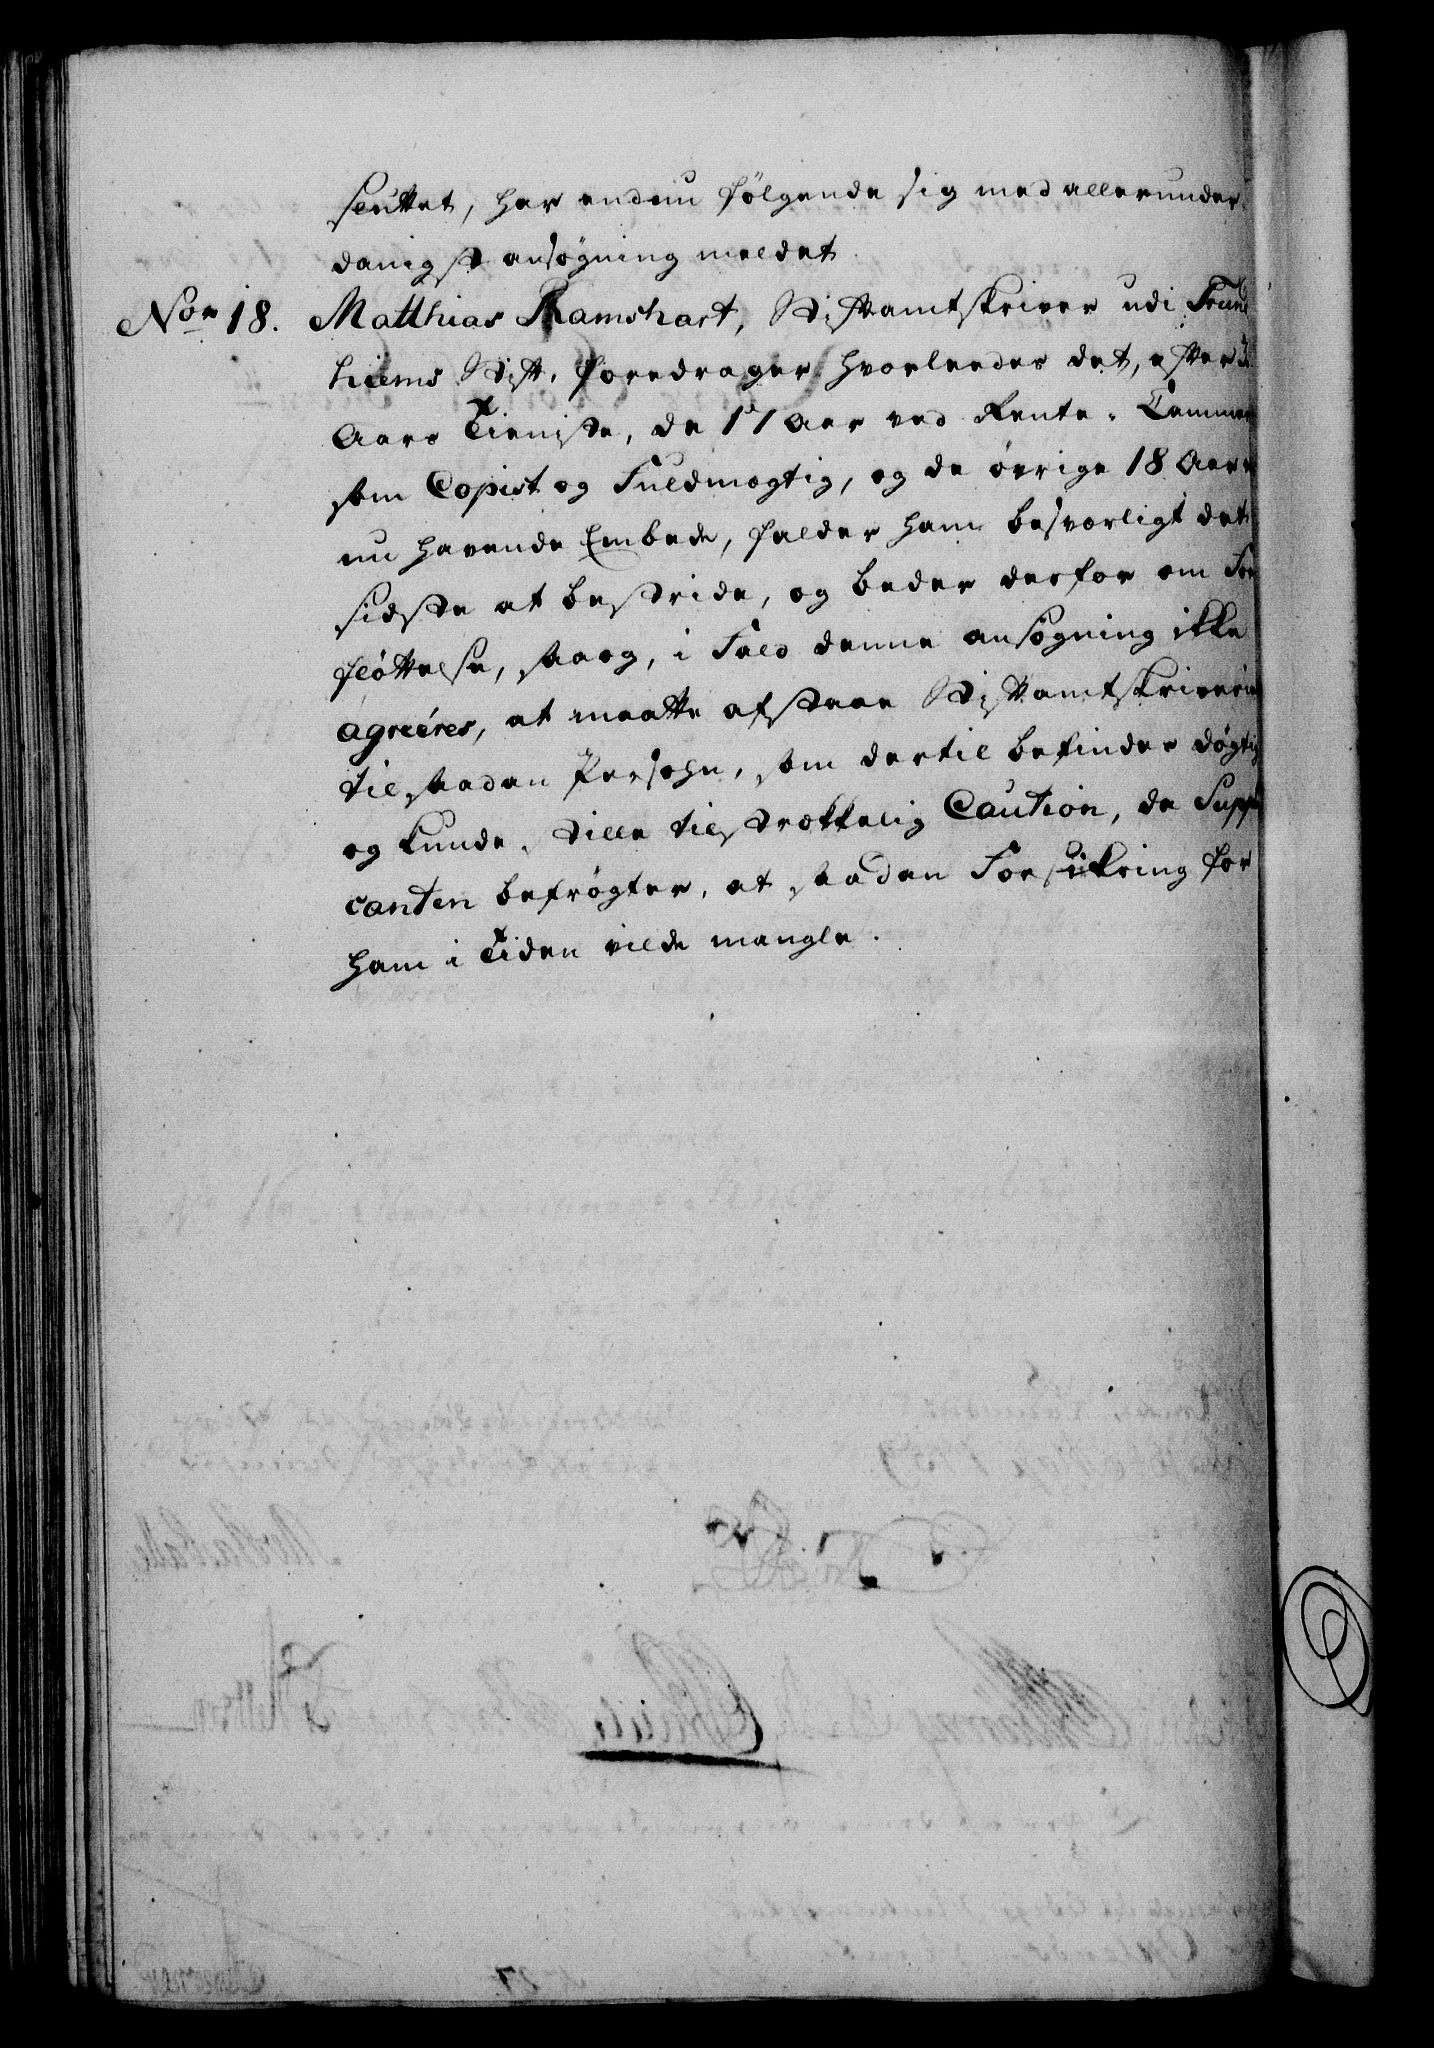 sluttet, har endnu følgende sig med allerunder-
danigst ansøgning meldet.
Nor 18. Matthias Ramshart, Stiftamtskriver udi Trund
hiems Stift, foredrager hvorleedes det, efter
Aars Tieniste, de 17 Aar ved Rente-Cammer
som Copist og Fuldmægtig, og de øvrige 18 Aar
nu havende Embede, falder ham besværligt det
sidste at bestride, og beder derfor om For
fløttelse, saa og, i Fald denne ansøgning ikke
agreéres, at maatte afstaae Stiftamtskriverie
til saadan Persohn, som dertil befindes døgtig
og kunde stille tilstrækkelig Caution, da Suppli
canten befrøgter, at saadan Forsikring for
ham i Tiden vilde mangle.